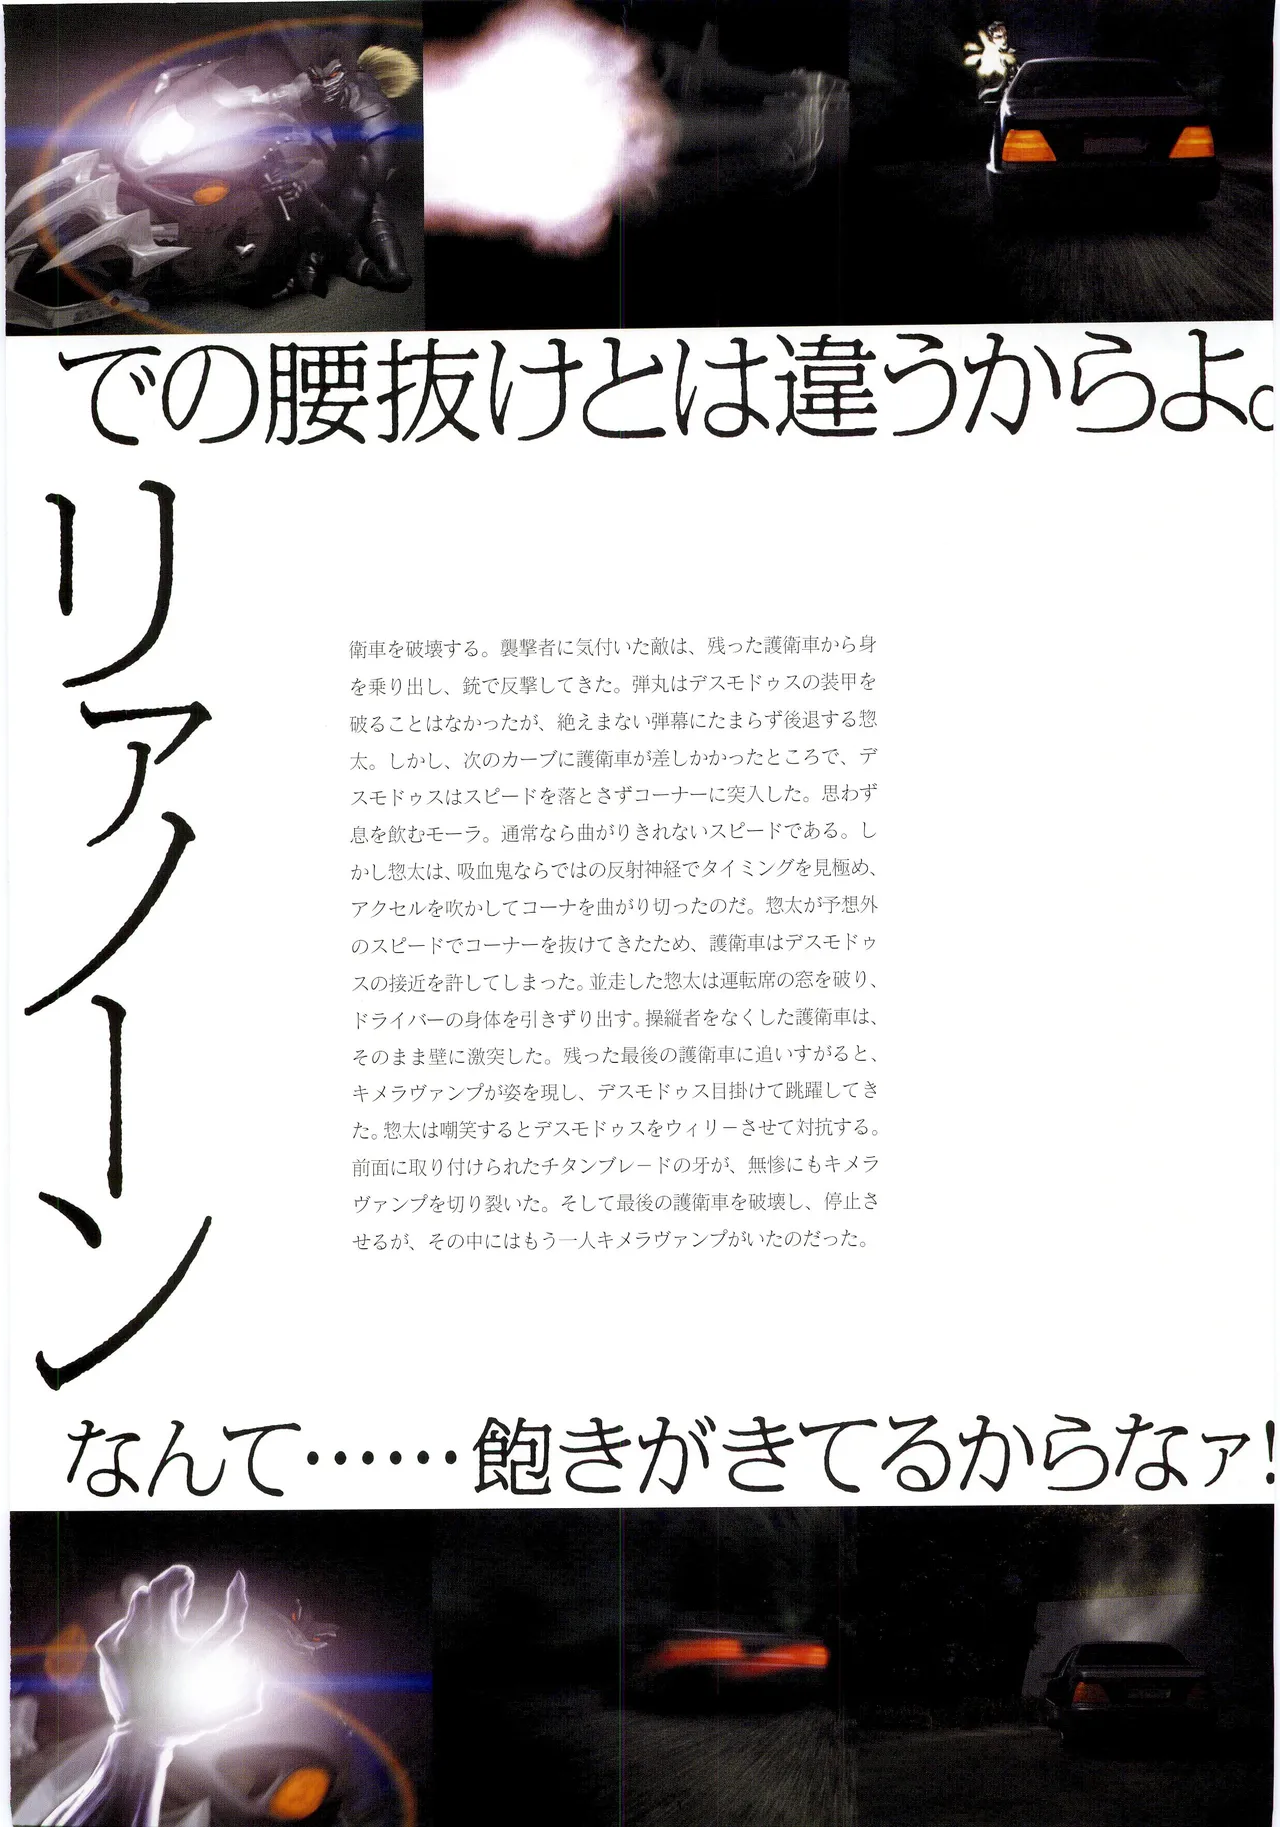 での腰抜けとは違うからよ。
リアノーン
衛車を破壊する。襲撃者に気付いた敵は、残った護衛車から身
を乗り出し、銃で反撃してきた。弾丸はデスモドゥスの装甲を
破ることはなかったが、絶えまない弾幕にたまらず後退する惣
太。しかし、次のカーブに護衛車が差しかかったところで、デ
スモドゥスはスピードを落とさずコーナーに突入した。思わず
息を飲むモーラ。通常なら曲がりきれないスピードである。し
かし惣太は、吸血鬼ならではの反射神経でタイミングを見極め、
アクセルを吹かしてコーナを曲がり切ったのだ。惣太が予想外
のスピードでコーナーを抜けてきたため、護衛車はデスモドゥ
スの接近を許してしまった。並走した惣太は運転席の窓を破り、
ドライバーの身体を引きずり出す。操縦者をなくした護衛車は、
そのまま壁に激突した。残った最後の護衛車に追いすがると、
キメラヴァンプが姿を現し、デスモドゥス目掛けて跳躍してき
た。惣太は嘲笑するとデスモドゥスをウィリーさせて対抗する。
前面に取り付けられたチタンブレードの牙が、無惨にもキメラ
ヴァンプを切り裂いた。そして最後の護衛車を破壊し、停止さ
せるが、その中にはもう一人キメラヴァンプがいたのだった。
なんて……飽きがきてるからなァ!